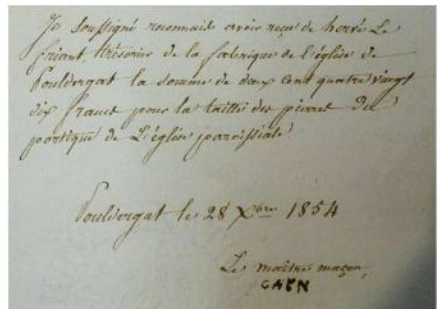 Je soussigné reconnais avoir reçu de hervé Le
friant, trésorier de la fabrique de l'église de
Pouldergat la somme de deux cent quatre vingt
dix francs pour la taille des pierres du
portique de L'église paroissiale
Pouldergat le 28 Xbre 1854
Le maître maçon,
CAEN